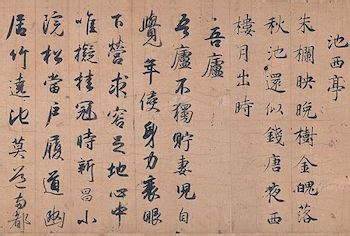 池西亭
朱欄映晚樹金魄落
秋池還似錢唐夜西
樓月出時
吾廬
吾廬不獨貯妻兒自
覺年侵身力衰眼
下營求容足地心中
准擬挂冠時新昌小
院松當戶履道幽
居竹遶池莫道兩都